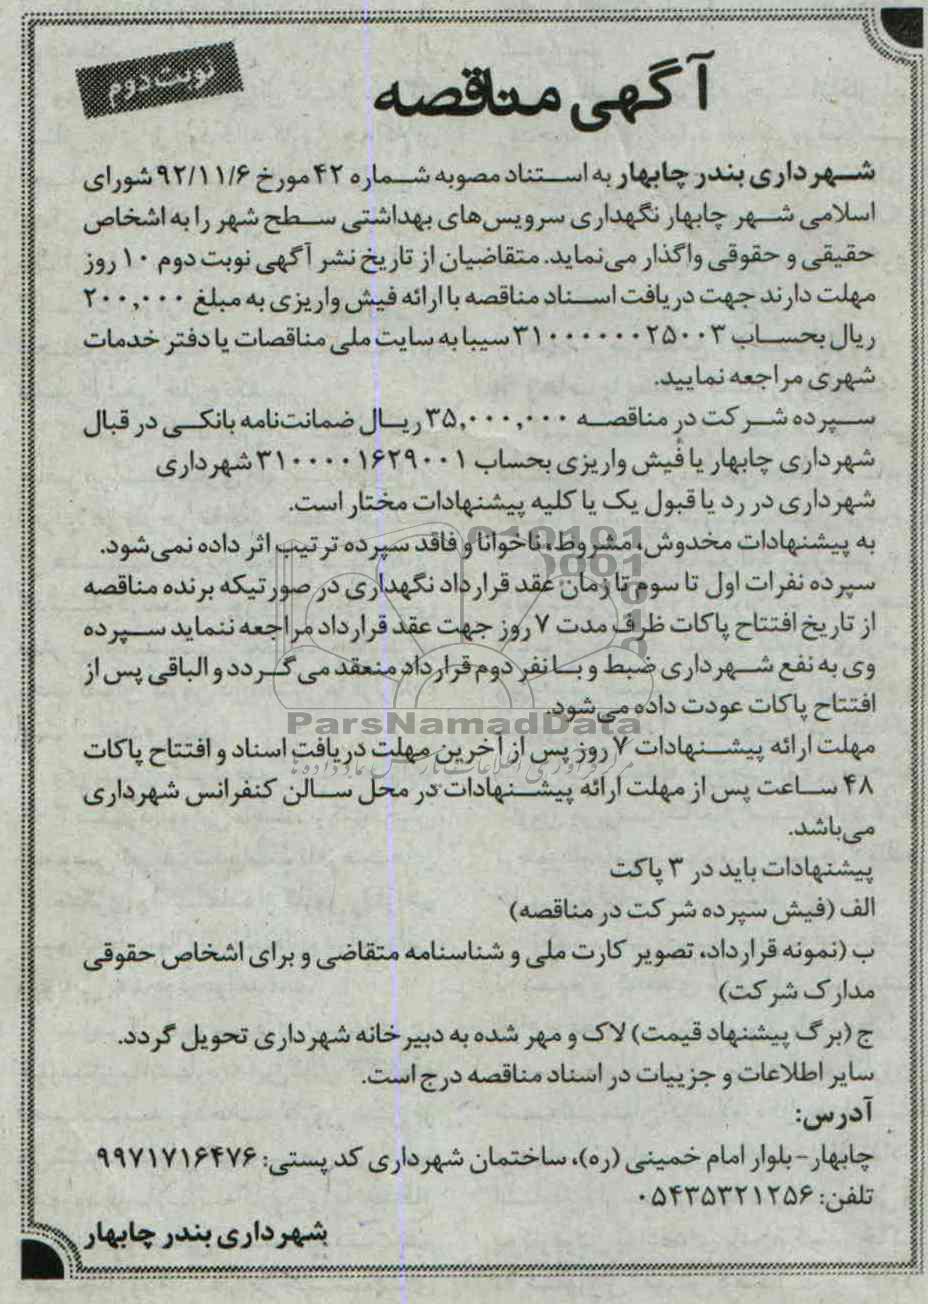 نوبت دوم
آگهی مناقصه
شهرداری بندر چابهار به استناد مصوبه شماره ۴۲ مورخ ۹۲/۱۱/۶ شورای
اسلامی شهر چابهار نگهداری سرویس‌های بهداشتی سطح شهر را به اشخاص
حقیقی و حقوقی واگذار می‌نماید. متقاضیان از تاریخ نشر آگهی نوبت دوم ۱۰ روز
مهلت دارند جهت دریافت اسناد مناقصه با ارائه فیش واریزی به مبلغ ۲۰۰,۰۰۰
ریال بحساب ۳۱۰۰۰۰۰۰۲۵۰۰۳ سیبا به سایت ملی مناقصات یا دفتر خدمات
شهری مراجعه نمایید.
سپرده شرکت در مناقصه ۳۵,۰۰۰,۰۰۰ ریال ضمانت‌نامه بانکی در قبال
شهرداری چابهار یا فیش واریزی بحساب ۳۱۰۰۰۰۱۶۲۹۰۰۱ شهرداری
شهرداری در رد یا قبول یک یا کلیه پیشنهادات مختار است.
به پیشنهادات مخدوش، مشروط، ناخوانا و فاقد سپرده ترتیب اثر داده نمی‌شود.
سپرده نفرات اول تا سوم تا زمان عقد قرارداد نگهداری در صورتیکه برنده مناقصه
از تاریخ افتتاح پاکات ظرف مدت ۷ روز جهت عقد قرارداد مراجعه ننماید سپرده
وی به نفع شهرداری ضبط و با نفر دوم قرارداد منعقد می‌گردد و الباقی پس از
افتتاح پاکات عودت داده می‌شود.
ParsNamadData
مهلت ارائه پیشنهادات ۷ روز پس از آخرین مهلت دریافت اسناد و افتتاح پاکات
۴۸ ساعت پس از مهلت ارائه پیشنهادات در محل سالن کنفرانس شهرداری
می‌باشد.
پیشنهادات باید در ۳ پاکت
الف (فیش سپرده شرکت در مناقصه)
ب (نمونه قرارداد، تصویر کارت ملی و شناسنامه متقاضی و برای اشخاص حقوقی
مدارک شرکت)
ج (برگ پیشنهاد قیمت) لاک و مهر شده به دبیرخانه شهرداری تحویل گردد.
سایر اطلاعات و جزییات در اسناد مناقصه درج است.
آدرس:
چابهار- بلوار امام خمینی (ره)، ساختمان شهرداری کد پستی: ۹۹۷۱۷۱۶۴۷۶
تلفن: ۰۵۴۳۵۳۲۱۲۵۶
شهرداری بندر چابهار